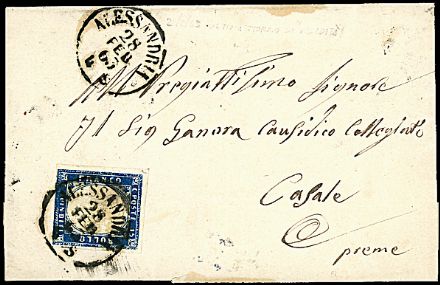 ALESSANDRIA
28
FEB
63
Al Pregiatissimo Signore
Il Sig Ganora Causidico Collegiato
Casale
preme
ALESSANDRIA
28
FEB
C. POSTE
BOLLO